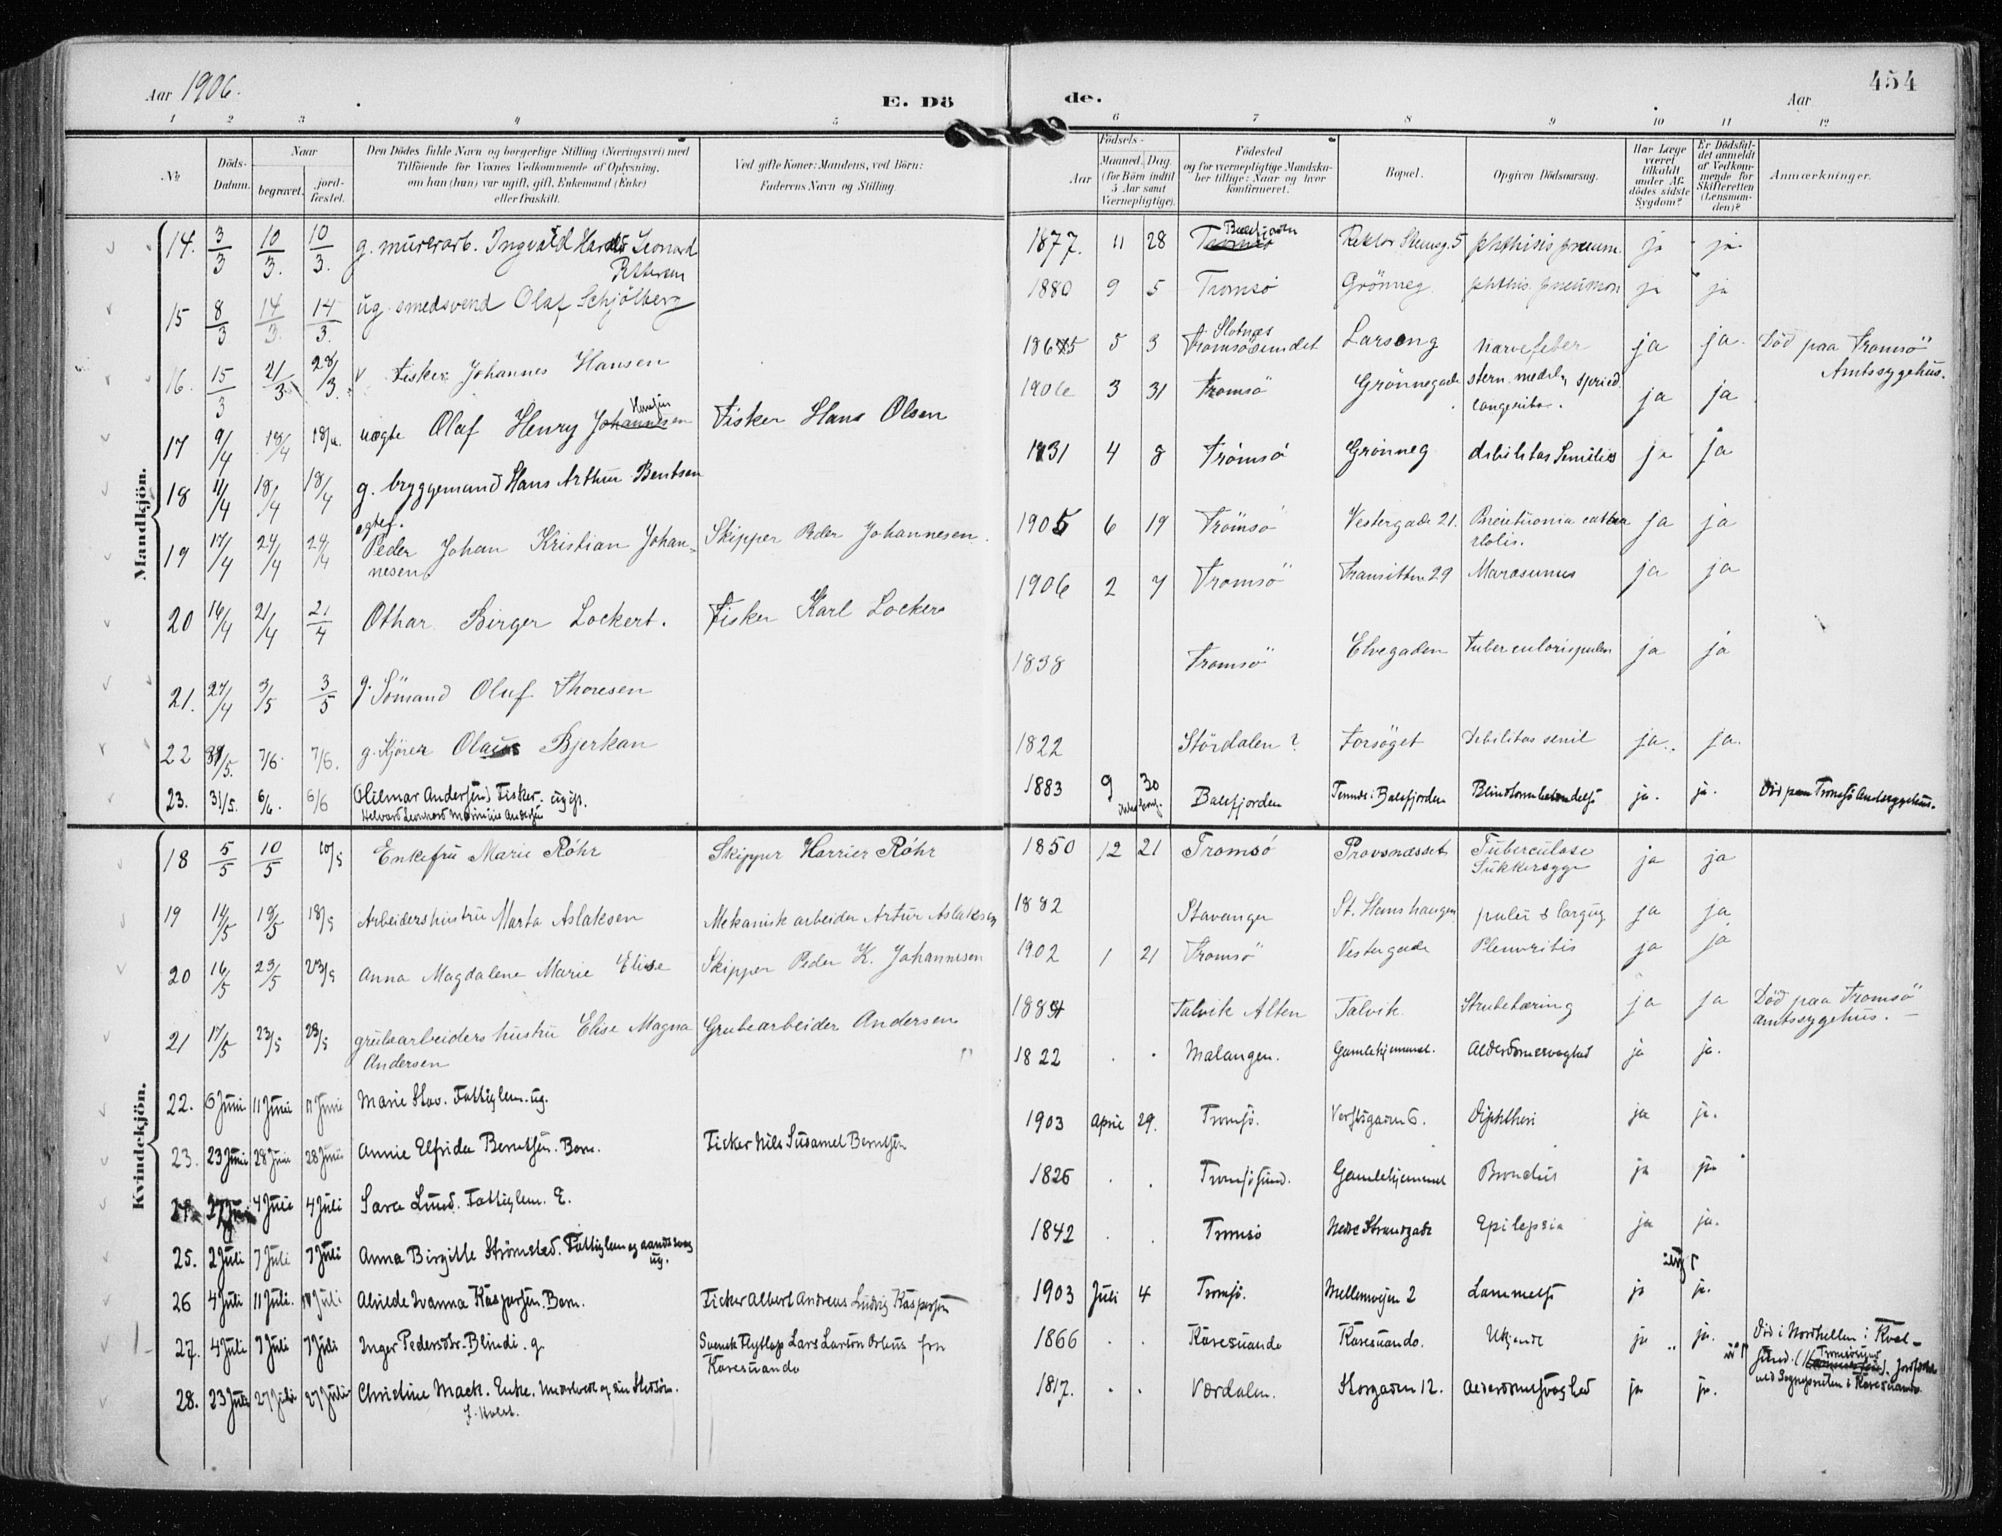 454
Aar 1906. E. Dö de. Aar
1 2 3 4 5 6 7 8 9 10 11 12
No Döds-Datum. Naar begravet. jordfæstet. Den Dödes fulde Navn og borgerlige Stilling (Næringsvei) med Tilföiende for Voxnes Vedkommende af Oplysning, om han (hun) var ugift, gift, Enkemand (Enke) eller fraskilt. Ved gifte Koner: Mandens, ved Börn: Faderens Navn og Stilling. Födsels- Aar Maaned. Dag. (for Börn indtil 5 Aar samt Værnepligtige). Födested og for værnepligtige Mandskaber tillige: Naar og hvor konfirmeret. Bopæl. Opgiven Dödsaarsag. Har Læge været tilkaldt under Afdödes sidste Sygdom? Er Dödsfaldet anmeldt af Vedkommende for Skifteretten (Lensmanden)? Anmærkninger.
Mandkjön.
14. 3/3 10/3. 10/3. g. murerarb. Ingvald Harald Leonard Pettersen 1877. 11 28 Balsfjorden Tromsö Rektor Steensg. 5 phthisis pneum. ja ja
15 8/3 14/3. 14/3. ug. smedsvend Olaf Schjölberg 1880 9 5 Tromsö Grönneg phthis. pneumon ja ja
16. 15/3 21/3 28/3. Fisker Johannes Hansen 5 3 Tromsösundet Larseng nervefeber ja ja. Död paa Tromsö Amtssygehus.
17 9/4 18/4 18/4. uægte Olaf Henry Johannesen Hansen Fisker Hans Olsen 1906 3 31 Tromsö Grönnegade ja ja
18 11/4 18/4 18/4 g. bryggemand Hans Arthur Bentsen 1831 4 8 Tromsö Grönneg debilitas Senilis ja ja
19 17/4 24/4 24/4 egtef. Peder Johan Kristian Johannesen. Skipper Peder Johannesen. 1905 6 19 Tromsö Vestergade 21. ja ja
20 16/4 21/4 21/4 Othar Birger Lockert. Fisker Karl Lockert 1906 2 7 Tromsö 29 Marasmus ja ja
21. 27/4 3/5 3/5 g. Sömand Oluf Thoresen 1838 Tromsö Elvegaden ja ja
22 31/5. 7/6. 7/6. g. Kjörer Olaus Bjerkan 1822 Stördalen? Forsöget Debilitas senil ja. ja.
23. 31/5. 6/6. 6/6 (Hilmar Andersen) Fisker. ugift. 1883 9 30 Balsfjorden i Balsfjorden Blindtarmbetændelse ja. ja. Död paa Tromsö Amtssygehus.
Kvindekjön.
18 5/5 10/5 10/5 Enkefru Marie Röhr Skipper Röhr 1850 12 21 Tromsö Pravsnæsset Tuberculose Sukkersyge ja ja
19 14/5 18/5 18/5 Arbeidershustru Marta Aslaksen Mekanisk arbeider Artur Aslaksen 1882 Stavanger St. Hanshaugen ja ja
20 16/5 23/5 23/5 Anna Magdalene Marie Elise Skipper Peder K. Johannesen 1902 1 21 Tromsö Vestergade Pleuritis ja ja
21 17/5 23/5 23/5 grubearbeiders hustru Elise Magna Andersen Grubearbeider Andersen 1884 Talvik Alten Talvik. Strubetæring ja ja Död paa Tromsö amtssygehus.
22. 6 Juni 11 Juni 11 Juni Marie Stav. Fattiglem. ug. 1822 . . Malangen. Gamlehjemmet. ja ja.
23. 23 Juni 28 Juni 28 Juni Annie Elfrida Berntsen. Barn. Fisker Nils Berntsen 1903 April 29. Tromsö. 6. Diphtheri ja ja.
24. 27 Juni 4 Juli 4 Juli Sara Lund. Fattiglem. E. 1825 . . Tromsösund. Gamlehjemmet ja ja
25. 2 Juli 7 Juli 7 Juli Anna Birgitte Strömsted. Fattiglem og aandssvag ug. 1842 . . Tromsö Nedre Strandgade Epilepsia ja ja.
26 4 Juli 11 Juli. 11 Juli Ivanna Kaspersen. Barn. Fisker Albert Andreas Ludvig Kaspersen 1903 Juli 4 Tromsö. Mellemveien 2 ja ja.
27. 4 Juli 7 Juli 7 Juli Inger Pedersdr. Blindi. g. Svensk Flytlap Lars Larson fra Karesuando 1866 . . Karesuando Karesuando. Ukjendt ja ja. Död i Nordhellen i Kvalsund. Tromsösund i Karesuando
28. 23 Juli 27 Juli 27 Juli Christine Mack. Enke. 1817. . . Værdalen. Storgaden 12. Alderdomssvaghed ja ja.